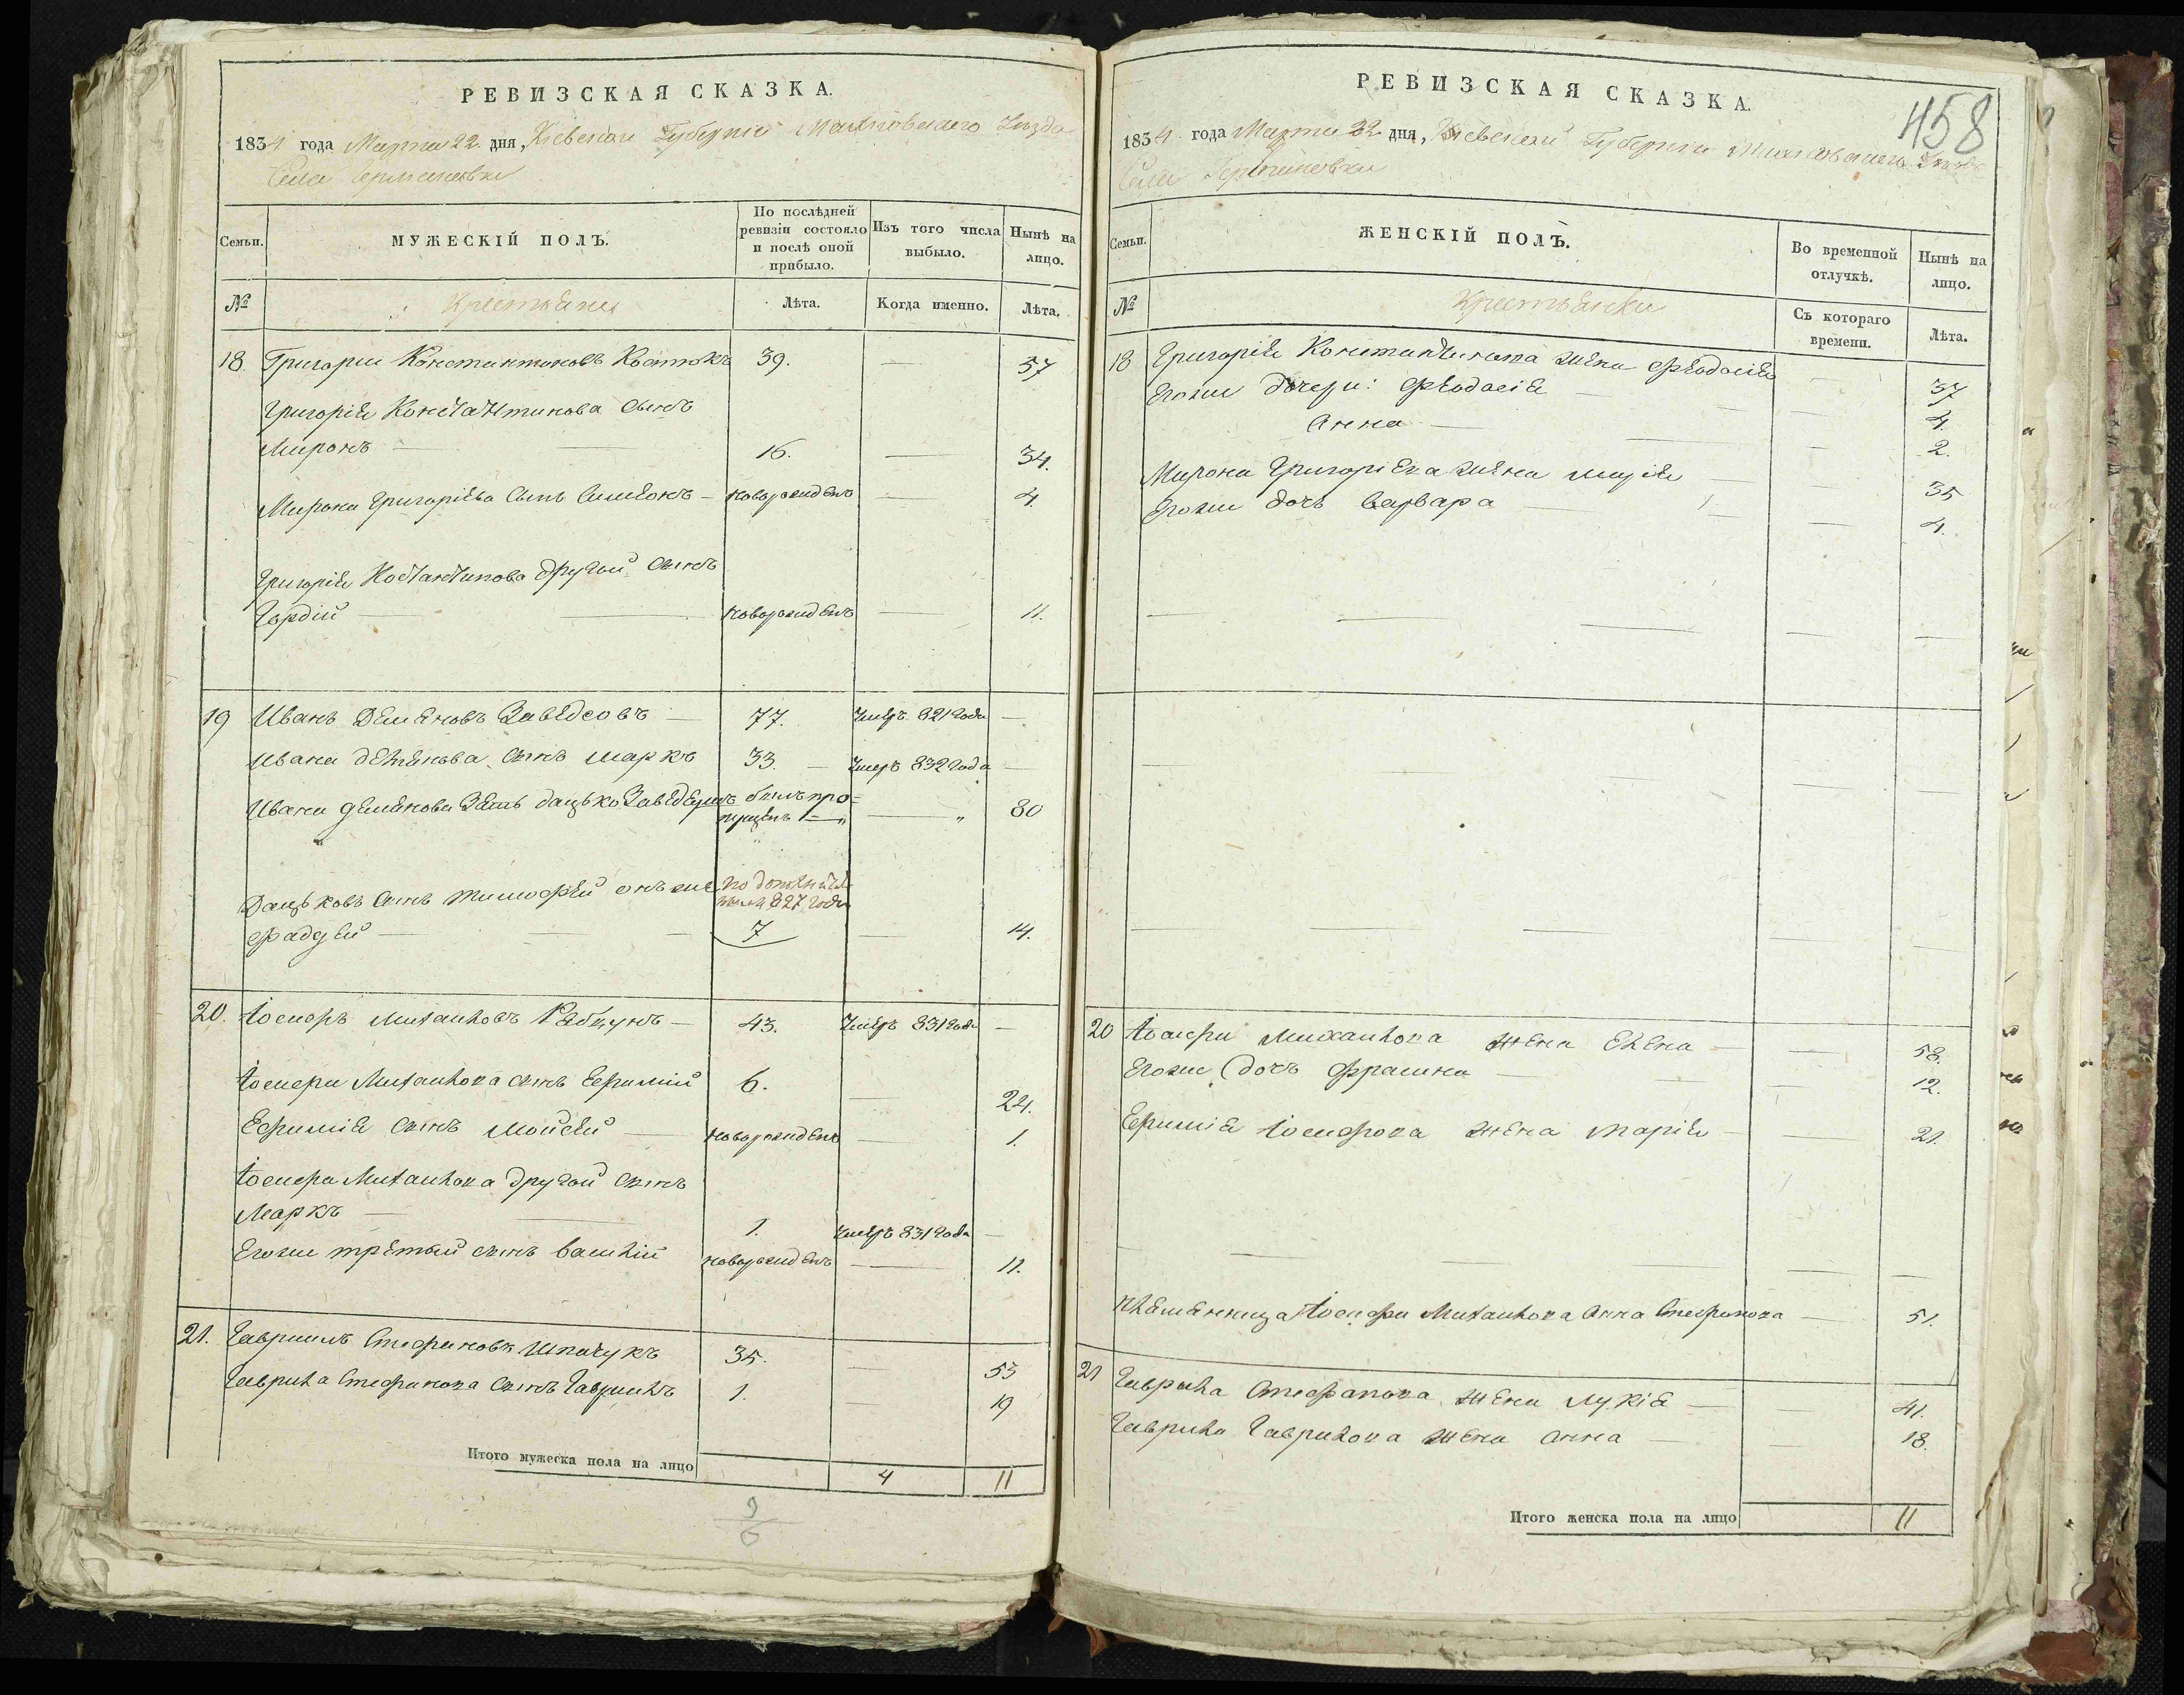 РЕВИЗСКАЯ СКАЗКА.
1834 года Марта 22 дня, Кіевской Губерніи Уѣзда
Села Германовки
Семьи.
МУЖЕСКІЙ ПОЛЪ.
По послѣдней ревизіи состояло и послѣ оной прибыло.
Изъ того числа выбыло.
Нынѣ на лицо.
№
Крестьяне
Лѣта.
Когда именно.
Лѣта.
18 Григорій Константиновъ Костюкъ 39. — 57
Григорія Константинова сынъ
Миронъ — 16. — 34.
Мирона Григоріева сынъ Симеонъ — новорожденъ — 4.
Григорія Костантинова другой сынъ
Гордій — новорожденъ — 11.
19 Иванъ Деменовъ 77. Умеръ 821 года —
Ивана Деменова сынъ Маркъ 33. — Умеръ 832 года —
Ивана Деменова Зять Дацько былъ про=
пущенъ — „ — „ 80
Дацьковъ сынъ Тимофей онъ же по
827 года
Фадѣй — 7 — 14.
20. Іосифъ Михайловъ 43. Умеръ 831 года —
Іосифа Михайлова сынъ Ефимій 6. — 24.
Ефимія сынъ Мойсей — новорожденъ — 1.
Іосифа Михайлова другой сынъ
Маркъ — 1. Умеръ 831 года —
Егоже третый сынъ Василій новорожденъ — 11.
21. Гавриилъ Стефановъ 35. — 53
Гаврила Стефанова сынъ Гаврилъ 1. — 19
Итого мужеска пола на лицо 4 11
9
6
РЕВИЗСКАЯ СКАЗКА.
458
1834 года Марта 22 дня, Кіевской Губерніи Уѣзда
Села Германовки
Семьи.
ЖЕНСКІЙ ПОЛЪ.
Во временной отлучкѣ.
Нынѣ на лицо.
№
Крестьянки
Съ котораго времени.
Лѣта.
18 Григорія Константинова жена Феодосія — 37
Егоже дочери: Феодосія — 4.
Анна — 2.
Мирона Григоріева жена Марія — 35
Егоже дочь Варвара — 4.
20 Іосифа Михайлова жена Елена — 58.
Егоже дочь Фросина — 12.
Ефимія Іосифова жена Марія — 21.
Племенница Іосифа Михайлова Анна Стефанова — 51.
21 Гаврила Стефанова жена Лукія — 41.
Гаврила Гаврилова жена Анна — 18.
Итого женска пола на лицо 11